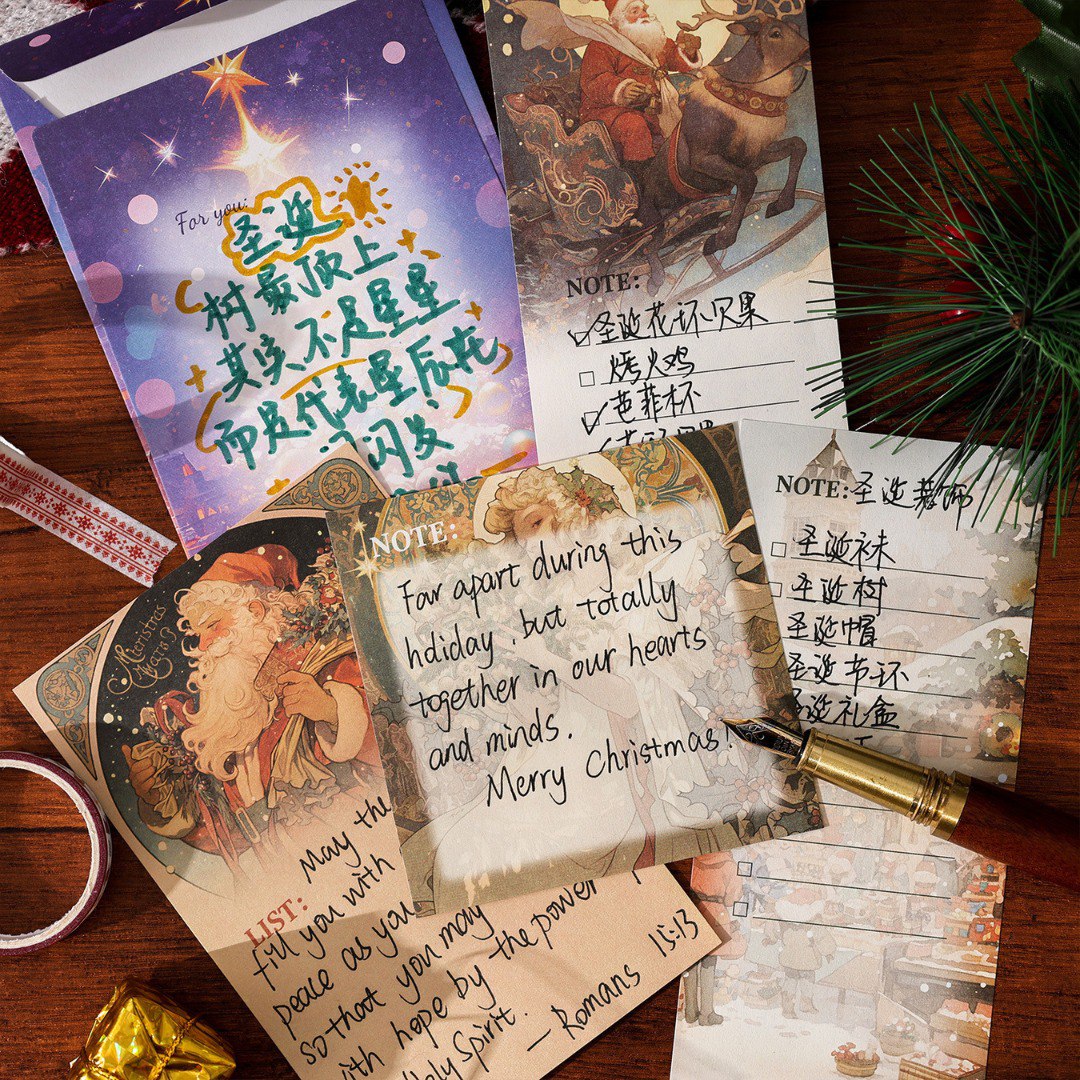 For you:
圣诞
树最顶上
其实不是星星
而是代表星辰在
闪发
NOTE:
圣诞花环贝果
烤火鸡
芭菲杯
NOTE:圣诞装饰
圣诞袜
圣诞树
圣诞帽
圣诞节环
圣诞礼盒
NOTE:
Far apart during this
holiday, but totally
together in our hearts
and minds.
Merry Christmas!
LIST:
May the
fill you with
peace as you
so thoat you may
with hope by the power
Holy Spirit.
— Romans 15:13